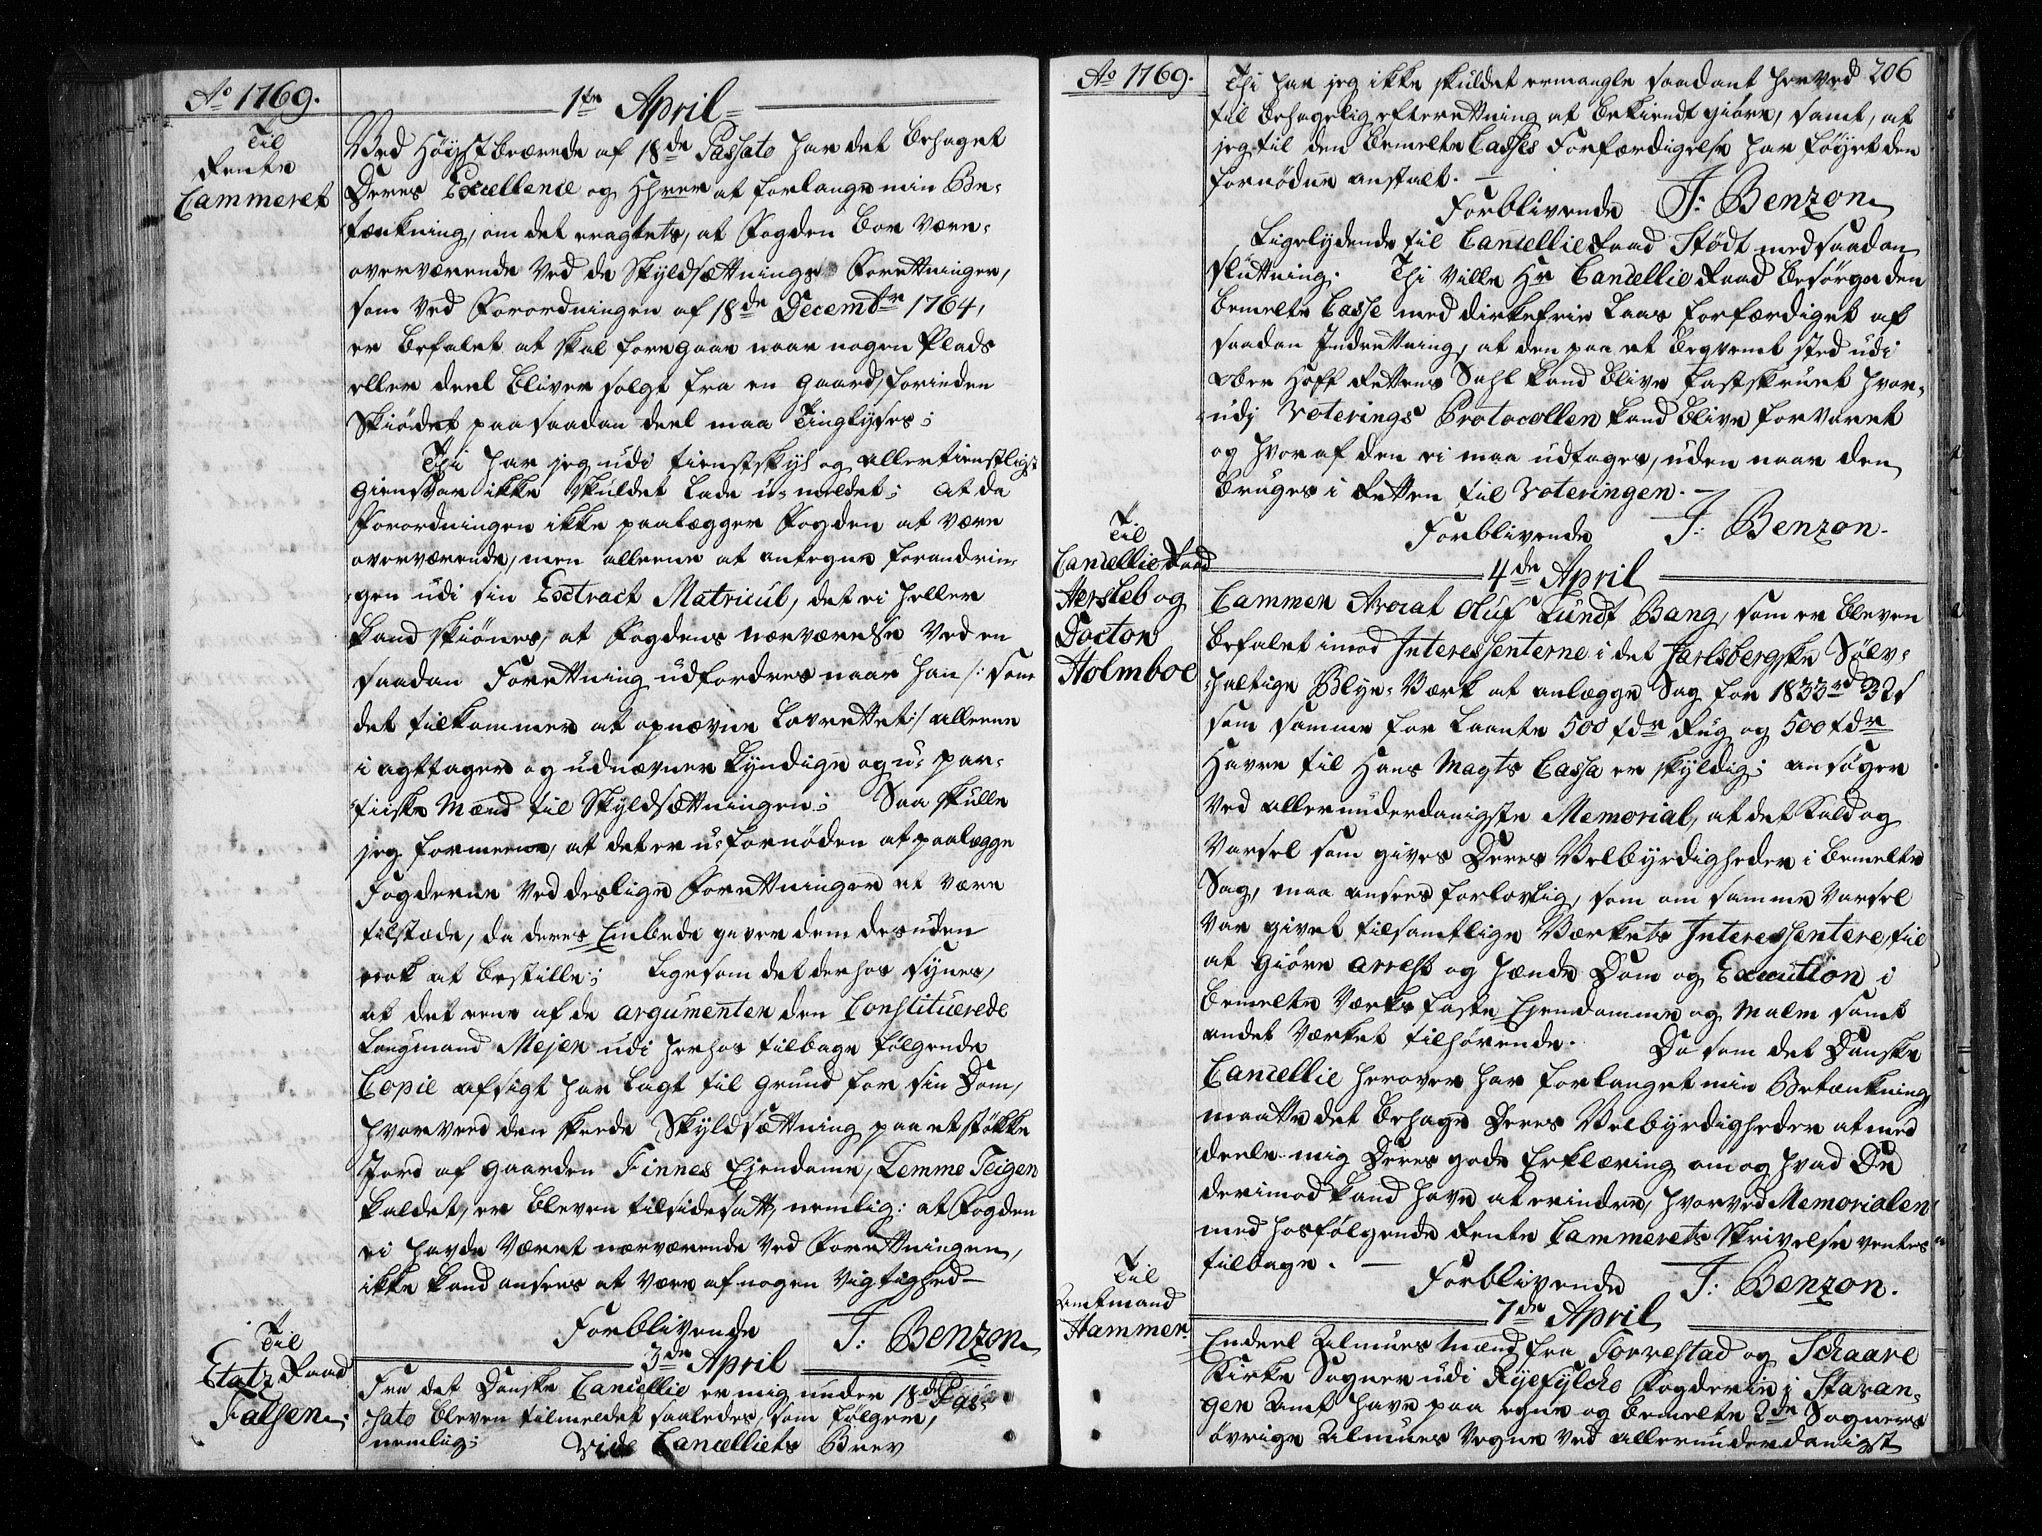 Ao 1769.
1ste April
Til
Rente
Cammeret
Ved Høystbærede af 18de Passato har det behaget
Deres Excellence og Hhrer at forlange min Be-
tænkning, om det eragtets, at Fogden bør være
overværende ved de Skyldsætnings Forretninger,
som ved Forordningen af 18de Decembr 1764,
er befalet at skal foregaae naar nogen Plads
eller deel bliver solgt fra en Gaard, forinden
Skiødet paa saadan deel maa Tinglyses;
Thi har jeg udi tienstskyl og allertienstligst
Giensvar ikke skuldet lade u-meldet; at da
Forordningen ikke paalægger Fogden at være
overværende, men alleene at antegne forandrin-
gen udi sin Extract Matricul, det ei heller
kand skiønes, at Fogdens nærværelse ved en
saadan Forrettning udfordres naar han /: som
det tilkommer at opnævne Lavrettet :/ alleene
i agttager og udnævner kyndige og u-par-
tiske Mænd til Skyldsættningen; Saa skulle
jeg formeene, at det er u-fornøden at paalægge
Fogderne ved deslige Forrettninger at være
tilstæde, da deres Embede giver dem desuden
nok at bestille; Ligesom det derhos synes,
at det eene af de argumenter den Constituerede
Laugmand Mejer udi herhos tilbage følgende
Copie afsigt har lagt til grund for sin Dom,
hvorved den skeede Skyldsættning paa et støkke
Jord af Gaarden Finnes Ejendame, Lemme Teigen
kaldet, er bleven tilsidesatt, nemlig: at Fogden
ei havde været nærværende ved Forrettningen,
ikke kand ansees at være af nogen Vigtighed
Forblivende J: Benzon
3de April
Til
Etatz Raad
Falsen.
Fra det Danske Cancellie er mig under 18de Pas-
sato bleven tilmeldet saaledes, som følger,
nemlig; vide Cancelliets Brev
Ao 1769.
206
Thi har jeg ikke skuldet ermangle saadant herved
til behagelig efterettning at bekiendt giøre, samt, at
jeg til den bemelte Casses Forfærdigelse har føyet den
fornødne anstalt.
Forblivende J: Benzon
Ligelydende til Cancellie Raad Stødt med saadan
Sluttning. Thi ville Hr Cancellie Raad besørge den
bemelte Casse med dirkefrie Laas forfærdiget af
saadan Indrettning, at den paa et beqvemt sted udi
Ober Hoff Rettens Sahl kand blive fastskruet hvor-
udj Voterings Protocollen kand blive forvaret
og hvoraf den ei maa udtages, uden naar den
bruges i Retten til Voteringen.
Forblivende J: Benzon.
4de April
Til
Cancellie Raad
Hersleb og
Doctor
Holmboe
Cammer Avocat Oluf Lundt Bang, som er bleven
befalet imod Interessenterne i det Jarlsbergske Sølv-
haltige Blye-Værk at anlægge Sag for 1833 rd 32 s
som samme for laante 500 tdr Rug og 500 tdr
Havre til Hans Mayts Cassa er skyldig; ansøger
ved allerunderdanigste Memorial, at det Kald og
Varsel som gives Deres Velbyrdigheder i bemelte
Sag, maa ansees forlovlig, som om samme varsel
var givet tilsamtlige Værkets Interessentere, til
at giøre arrest og hænde Dom og Execution i
bemelte Værks faste Ejendomme og Malm samt
andet Værket tilhørende. Da som det Danske
Cancellie herover har forlanget min Betænkning,
maatte det behage Deres Velbyrdigheder at med
deele mig Deres gode Erklæring om og hvad De
derimod kand have at erindre, hvorved Memorialen
med hosfølgende Rente Cammerets Skrivelse ventes
tilbage.
Forblivende J: Benzon.
7de April
Til
Amtmand
Hammer.
Endeel Almues Mænd fra Torrestad og Schaare
Kirke Sogner udi Ryefylche Fogderie i Stavan-
gen Amt have paa egne og bemelte 2de Sogners
øvrige Almues Vegne ved allerunderdanigst